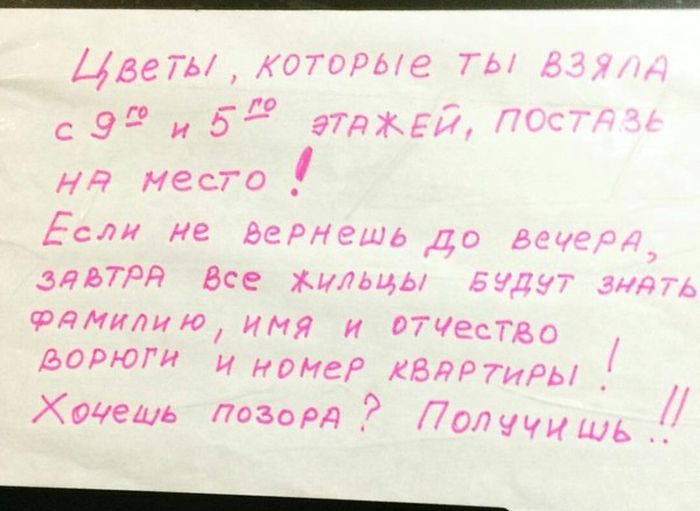 Цветы, которые ты взяла
с 9го и 5го этажей, поставь
на место!
Если не вернешь до вечера,
завтра все жильцы будут знать
фамилию, имя и отчество
ворюги и номер квартиры!
Хочешь позора? Получишь!!!